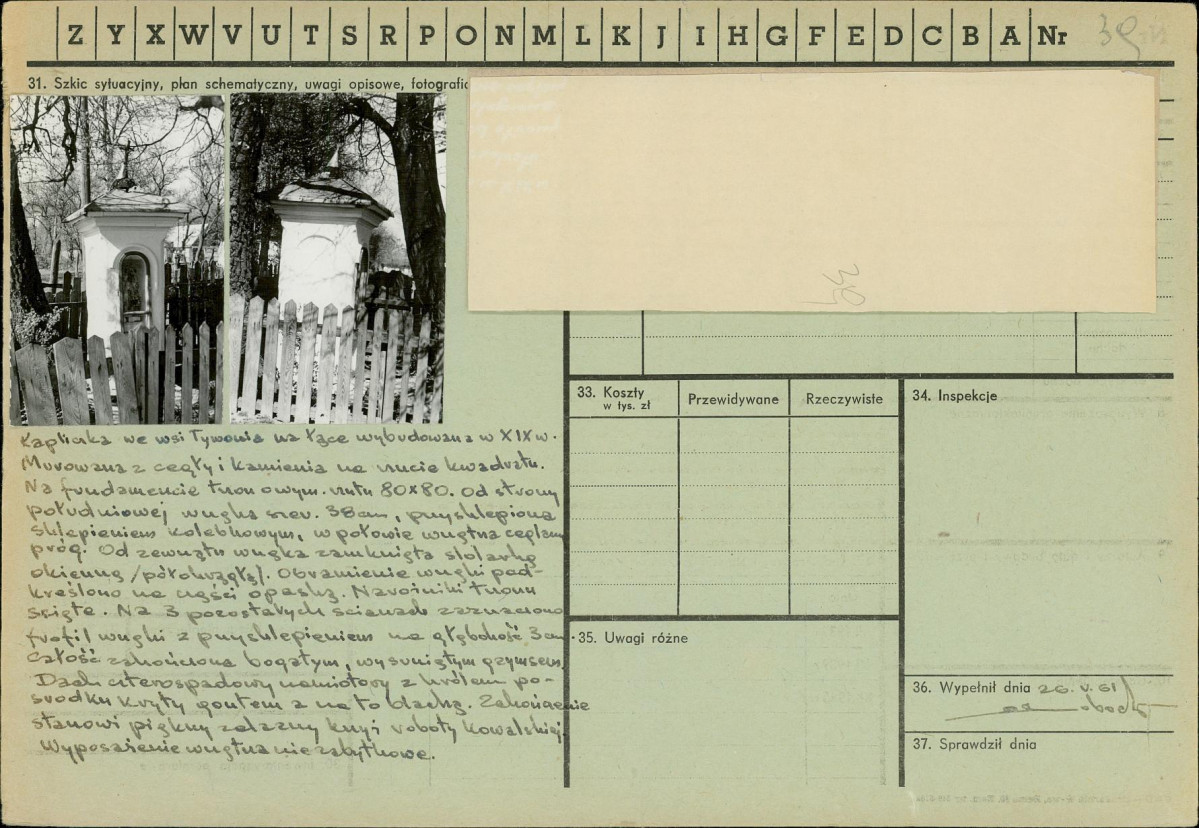 Z Y X W V U T S R P O N M L K J I H G F E D C B A Nr 39
31. Szkic sytuacyjny, plan schematyczny, uwagi opisowe, fotografia
Kapliczka we wsi Tywonia na łące wybudowana w XIX w.
Murowana z cegły i kamienia na rzucie kwadratu.
Na fundamencie trzon o wym. rzutu 80x80. Od strony
południowej wnęka szer. 38 cm, przysklepiona
sklepieniem kolebkowym, w połowie wnętrza ceglany
próg. Od zewnątrz wnęka zamknięta stolarką
okienną /półokrągłą/. Obramienie wnęki pod-
kreślono na części opaską. Narożniki trzonu
ścięte. Na 3 pozostałych ścianach zaznaczono
profil wnęki z przysklepieniem na głębokość 3 cm
Całość zakończona bogatym, wysuniętym gzymsem.
Dach czterospadowy namiotowy z królem po-
środku kryty gontem a na to blachą. Zakończenie
stanowi piękny żelazny krzyż roboty kowalskiej.
Wyposażenie wnętrza nie zabytkowe.
39
33. Koszty
w tys. zł
Przewidywane
Rzeczywiste
34. Inspekcje
35. Uwagi różne
36. Wypełnił dnia 26.V.61
37. Sprawdził dnia